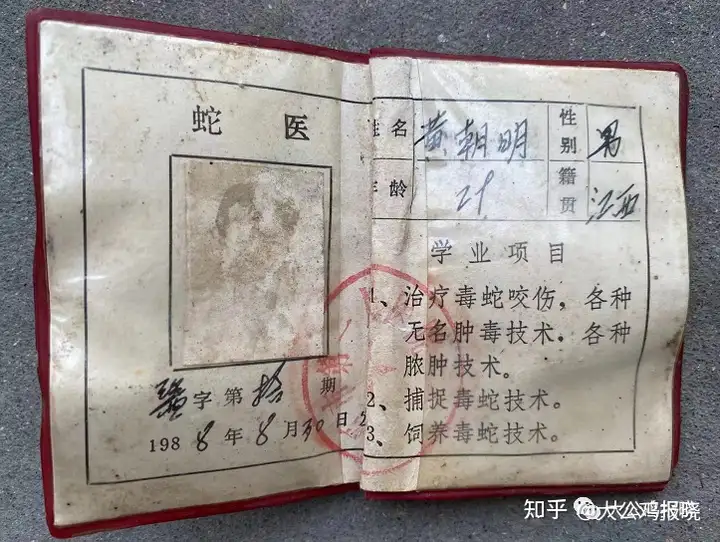 蛇 医
字第拾期
1988年8月30日
姓名 黄朝明 性别 男
年龄 29 籍贯 江西
学业项目
1、治疗毒蛇咬伤，各种
无名肿毒技术．各种
脓肿技术。
2、捕捉毒蛇技术。
3、饲养毒蛇技术。
知乎 @大公鸡报晓